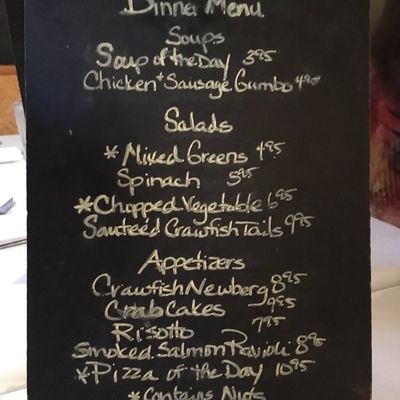 Dinner Menu
Soups
Soup of the Day 3.95
Chicken + Sausage Gumbo 4.95
Salads
*Mixed Greens 4.95
Spinach 5.95
*Chopped Vegetable 6.95
Sauteed Crawfish Tails 9.95
Appetizers
Crawfish Newberg 8.95
Crab Cakes 9.95
Risotto 7.95
Smoked Salmon Ravioli 8.95
*Pizza of the Day 10.95
*Contains Nuts